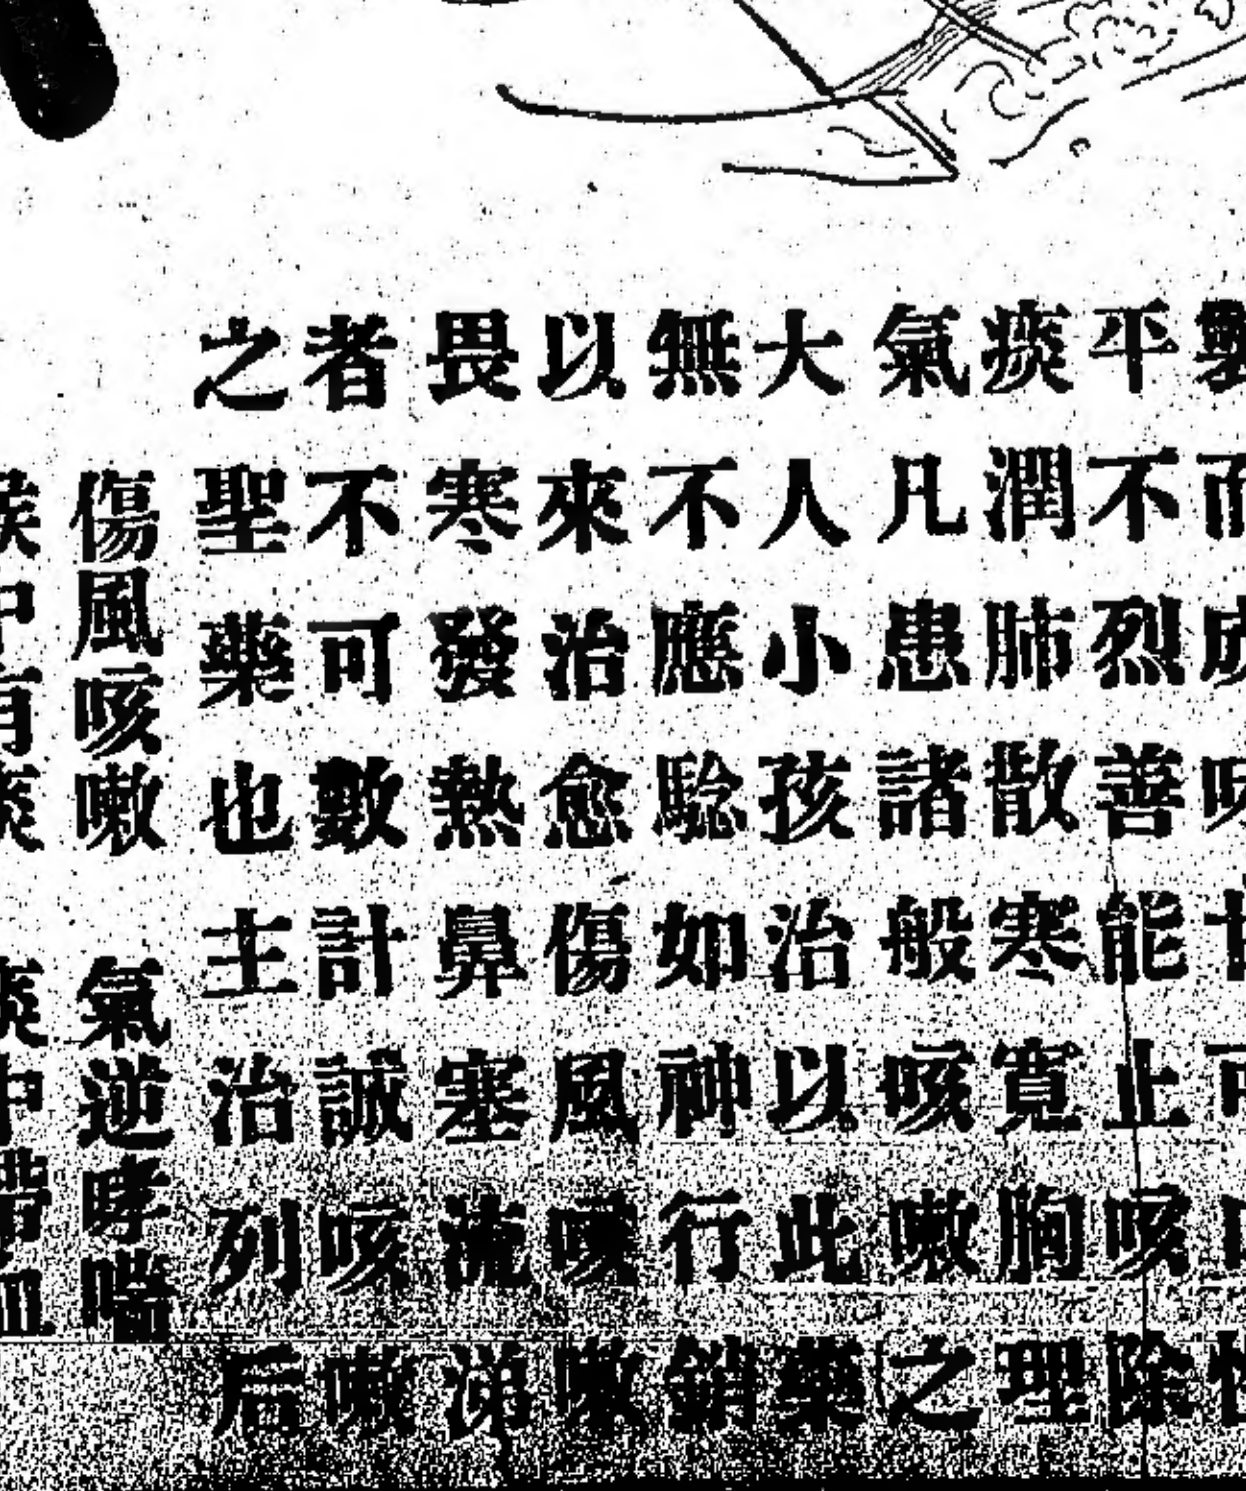 而成味甘可口性
平不烈善能止咳除
痰潤肺散寒寬胸理
氣凡患諸般咳嗽之
大人小孩治以此藥
無不應驗如神行銷
以來治愈傷風咳嗽
畏寒發熱鼻塞流涕
者不可數計誠咳嗽
之聖藥也主治列后
傷風咳嗽 氣逆哮喘
喉中有痰 痰中帶血